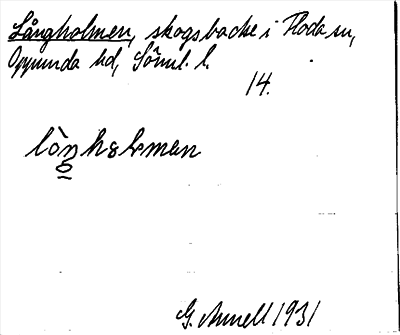 Långholmen, skogsbacke i Floda sn,
Oppunda hd, Söml. l.
14.
lòŋhɔlmən
G. Annell 1931